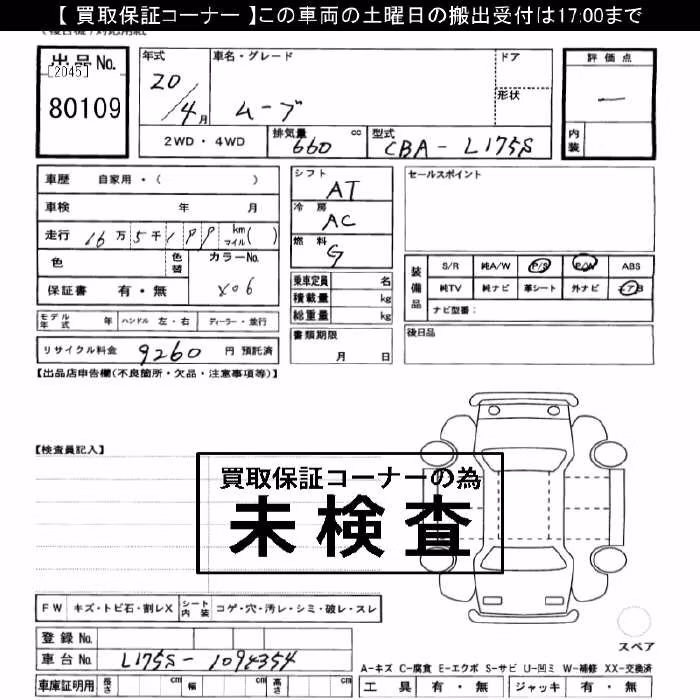 【 買取保証コーナー 】この車両の土曜日の搬出受付は17:00まで
出品No.
[2045]
80109
年式
20/4月
車名・グレード
ムーブ
ドア
形状
2WD・4WD
排気量
660 cc
型式
CBA-L175S
評価点
ー
内装
車歴 自家用・( )
車検 年 月
走行 16万5千199 km マイル( )
色
色替
カラーNo.
X06
保証書 有・無
モデル年式 年 ハンドル 左・右 ディーラー・並行
リサイクル料金 9260 円 預託済
シフト
AT
冷房
AC
燃料
G
乗車定員 名
積載量 kg
総重量 kg
書類期限
月 日
セールスポイント
装備品
S/R 純A/W P/S P/W ABS
純TV 純ナビ 革シート 外ナビ
ナビ型番:
後日品
【出品店申告欄(不良箇所・欠品・注意事項等)】
【検査員記入】
買取保証コーナーの為
未検査
FW キズ・トビ石・割レX シート内装 コゲ・穴・汚レ・シミ・破レ・スレ
登録No.
車台No. L175S-
車庫証明用 長さ cm 幅 cm 高さ cm
スペア
A-キズ C-腐食 E-エクボ S-サビ U-凹ミ W-補修 XX-交換済
工具 有・無 ジャッキ 有・無